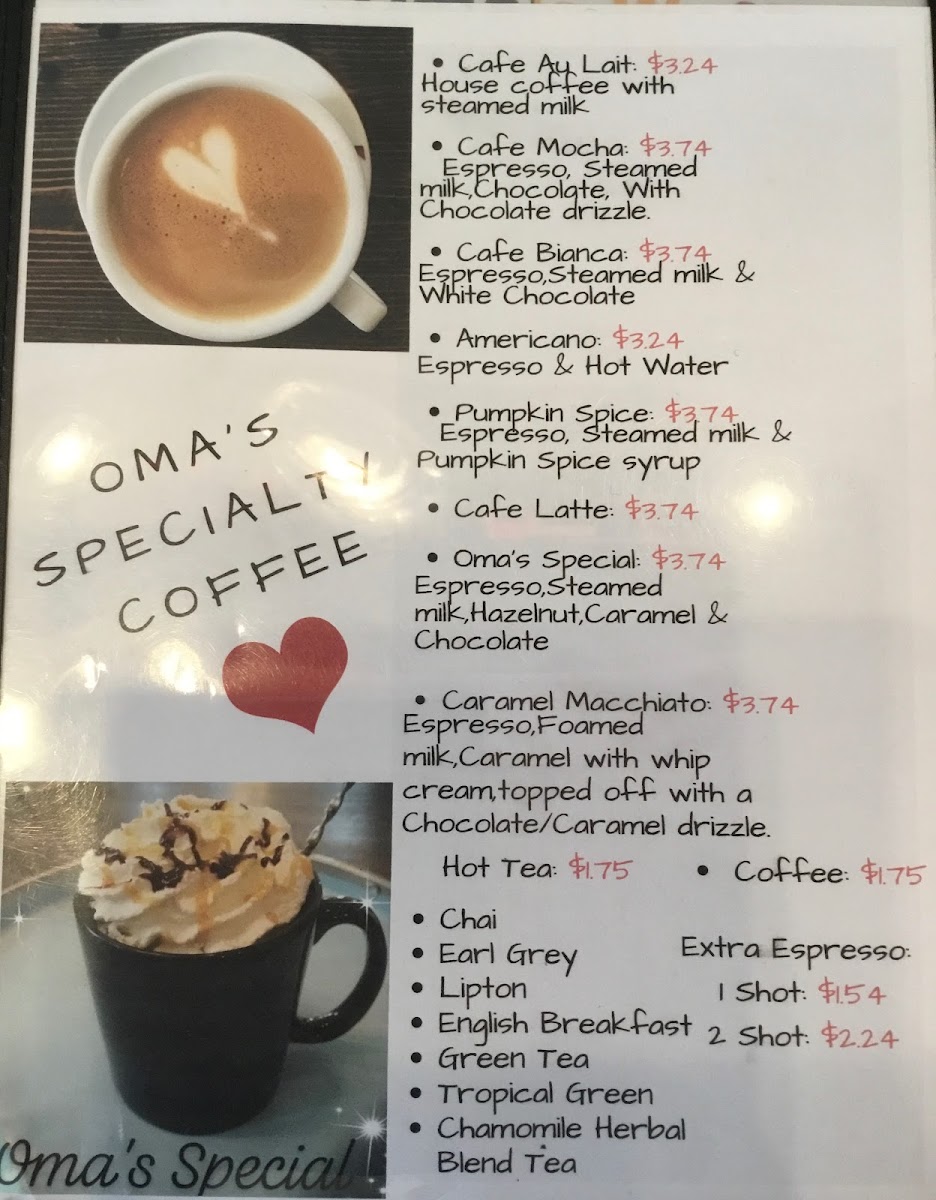 OMA'S
SPECIALTY
COFFEE
• Cafe Au Lait: $3.24
House coffee with
steamed milk
• Cafe Mocha: $3.74
Espresso, Steamed
milk,Chocolate, With
Chocolate drizzle.
• Cafe Bianca: $3.74
Espresso,Steamed milk &
White Chocolate
• Americano: $3.24
Espresso & Hot Water
• Pumpkin Spice: $3.74
Espresso, Steamed milk &
Pumpkin Spice syrup
• Cafe Latte: $3.74
• Oma's Special: $3.74
Espresso,Steamed
milk,Hazelnut,Caramel &
Chocolate
• Caramel Macchiato: $3.74
Espresso,Foamed
milk,Caramel with whip
cream,topped off with a
Chocolate/Caramel drizzle.
Hot Tea: $1.75
• Chai
• Earl Grey
• Lipton
• English Breakfast
• Green Tea
• Tropical Green
• Chamomile Herbal
Blend Tea
• Coffee: $1.75
Extra Espresso:
1 Shot: $1.54
2 Shot: $2.24
Oma's Special